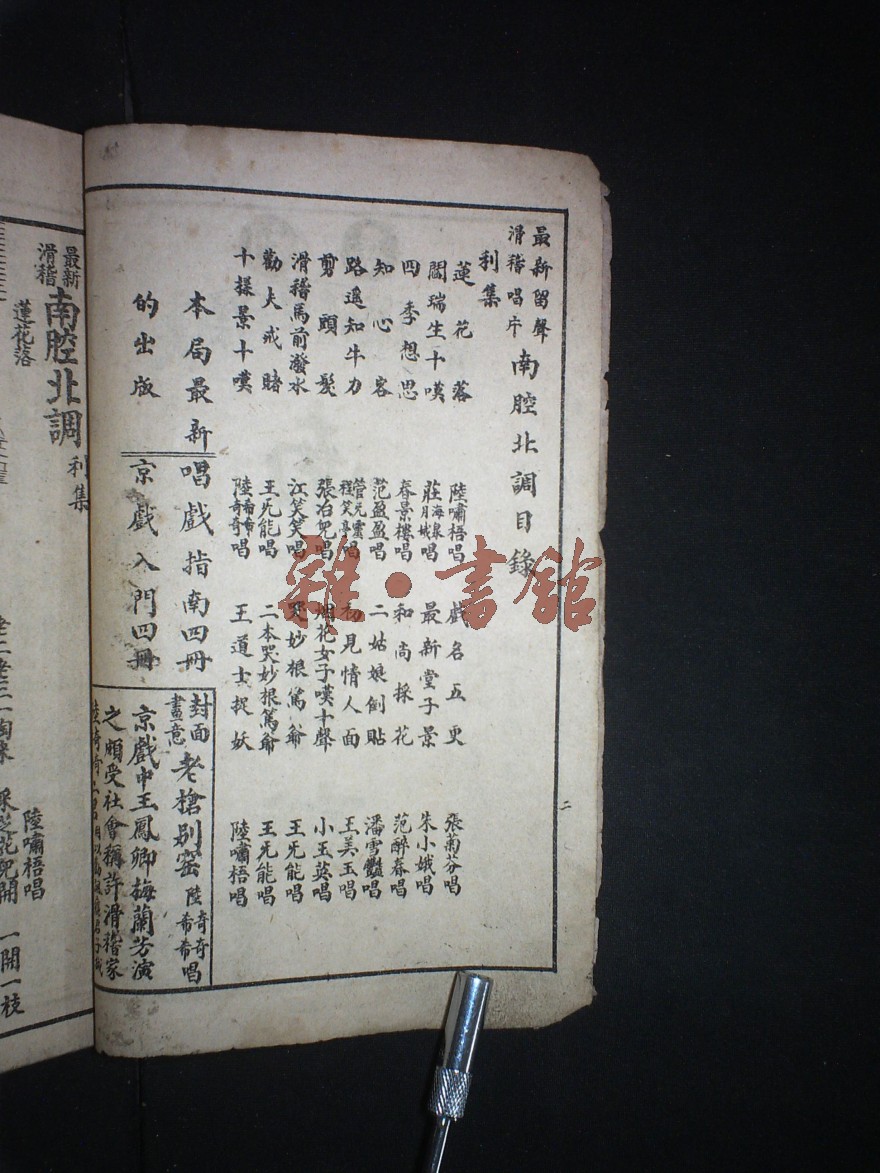 最新留聲
滑稽唱片
南腔北調目錄
利集
蓮花落
陸嘯梧唱
戲名五更
張菊芬唱
閻瑞生十嘆
莊海泉月娥唱
最新堂子景
朱小娥唱
四季想思
春景樓唱
和尚採花
范醉春唱
知心客
范盈盈唱
二姑娘倒貼
潘雪豔唱
路遥知牛力
管无靈程笑亭唱
初見情人面
王美玉唱
剪頭髮
張冶兒唱
烟花女子嘆十聲
小王英唱
滑稽馬前潑水
江笑笑唱
哭妙根篤爺
王无能唱
勸夫戒賭
王无能唱
二本哭妙根篤爺
王无能唱
十樣景十嘆
陸希希奇奇唱
王道士捉妖
陸嘯梧唱
本局最新
的出版
唱戲指南四冊
京戲入門四冊
封面
畫意
老槍别窑
陸奇奇希希唱
京戲中王鳳卿梅蘭芳演
之頗受社會稱許滑稽家
二
最新
滑稽
南腔北調
利集
蓮花落
陸嘯梧唱
採芝花兒開
一開一枝
雜·書館